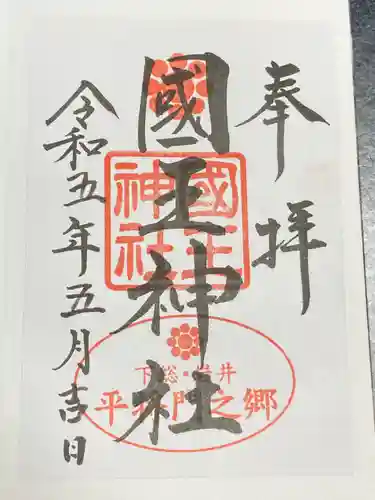 奉拝
國王神社
令和五年五月吉日
國王神社
下総・岩井
平将門之郷